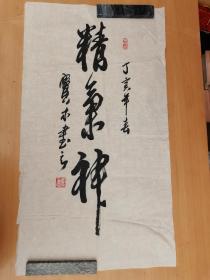 丁亥年春
精氣神
寶木書